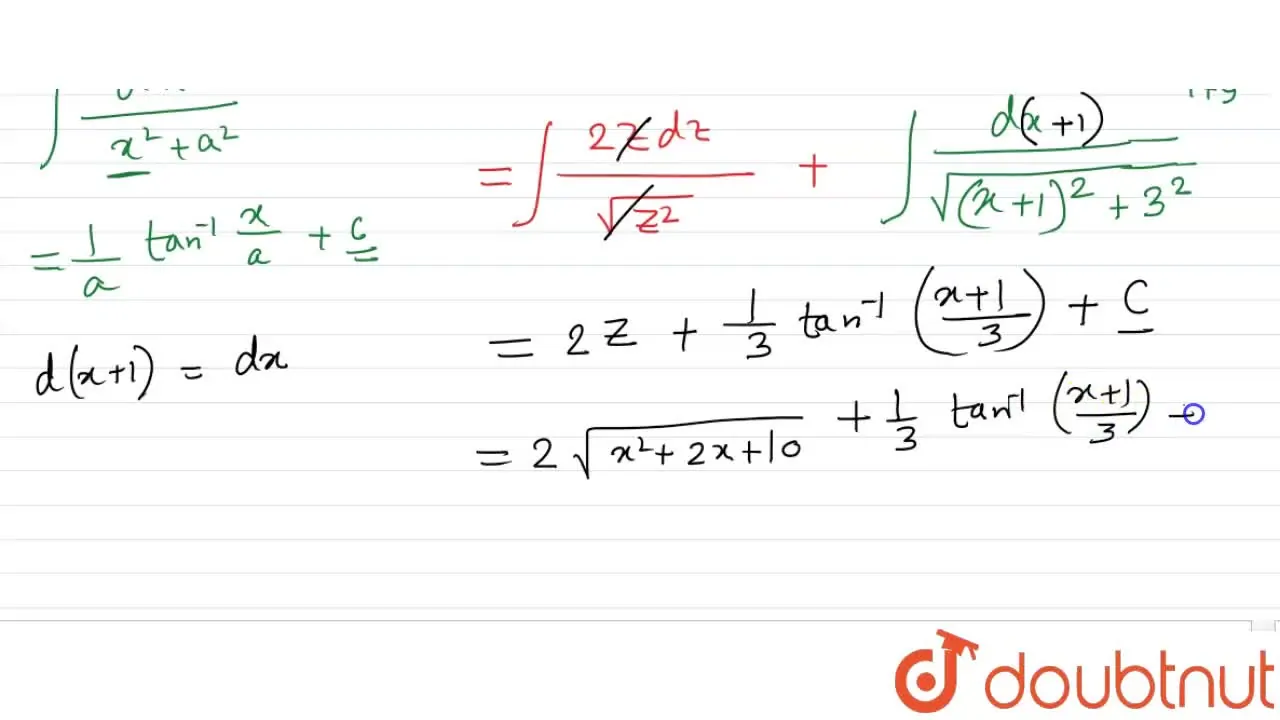 ∫ ─── / x² + a²
= 1/a tan⁻¹ x/a + c
d(x+1) = dx
= ∫ 2z dz / √z² + ∫ d(x+1) / √(x+1)² + 3²
= 2z + 1/3 tan⁻¹ (x+1/3) + C
= 2 √x² + 2x + 10 + 1/3 tan⁻¹ (x+1/3) +
doubtnut